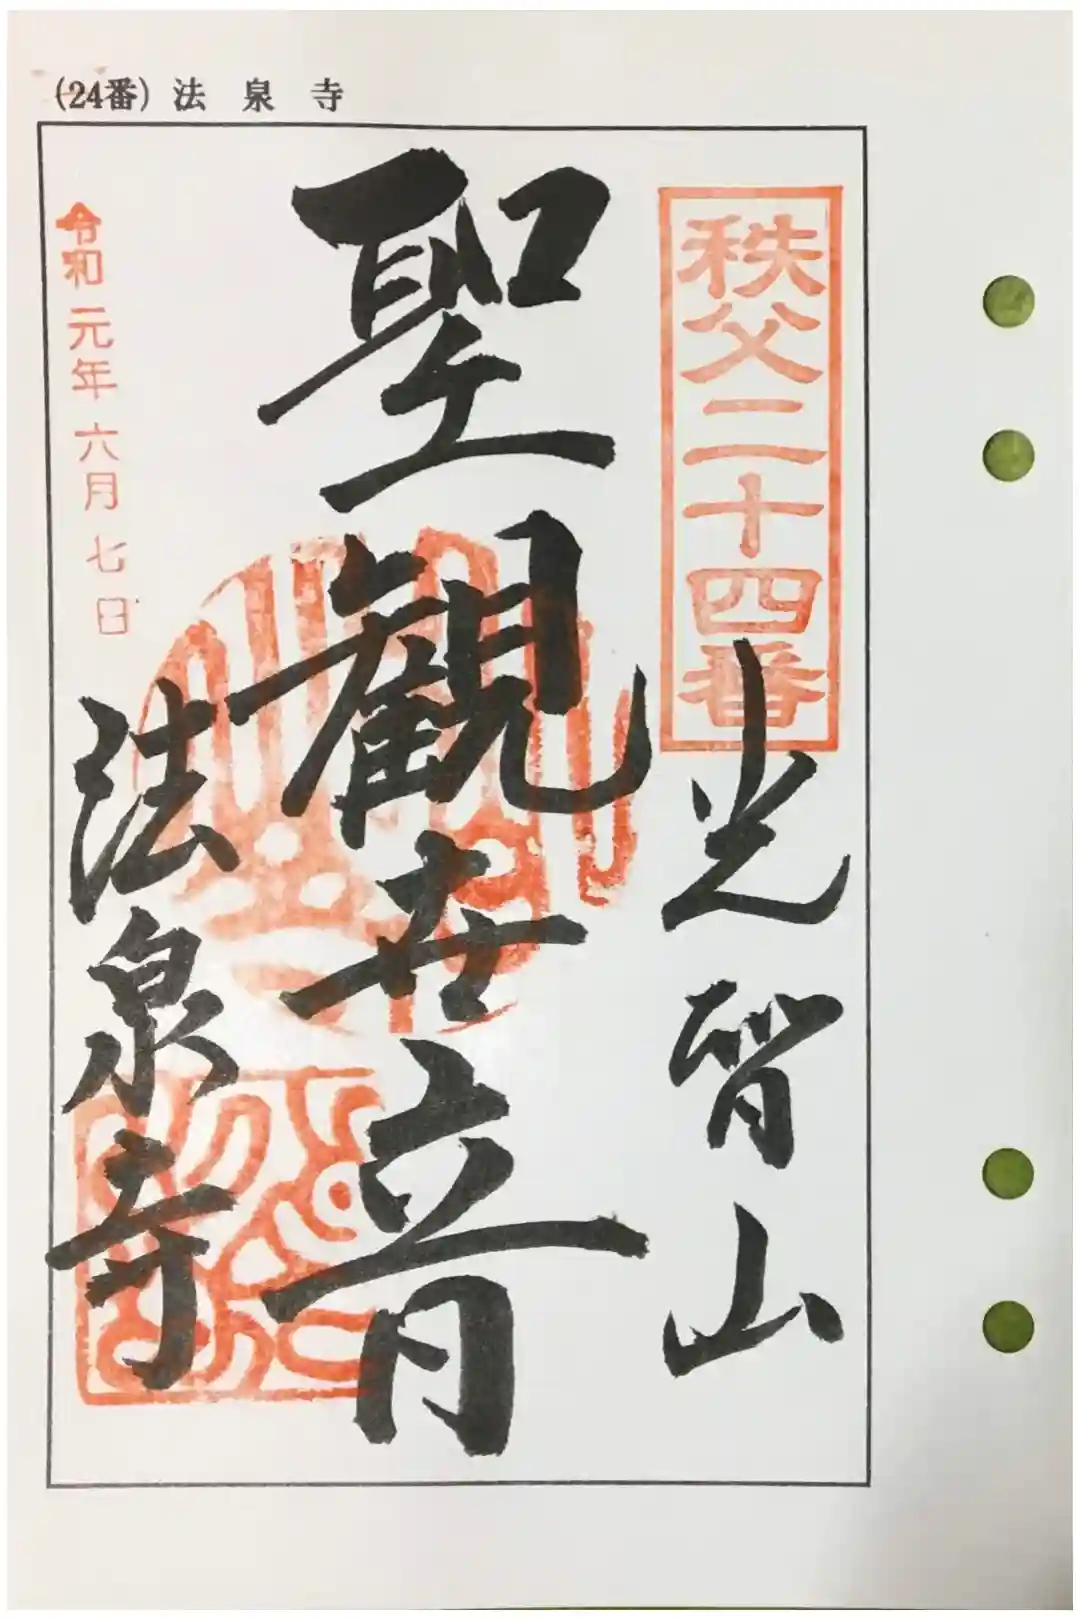 (24番) 法泉寺
秩父二十四番
光智山
聖観世音
法泉寺
令和元年六月七日